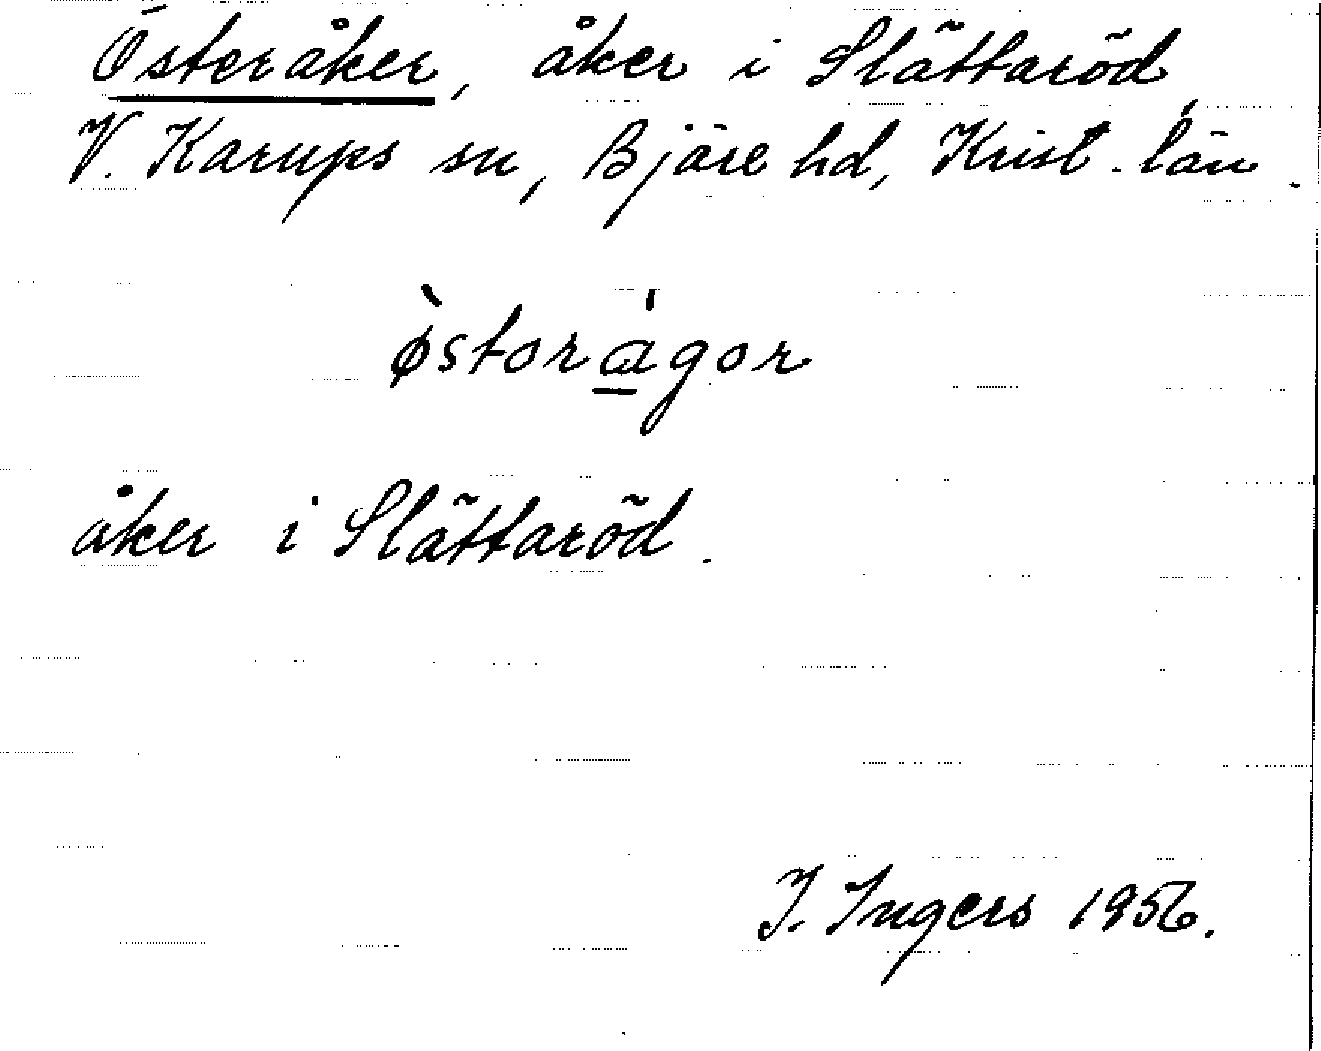 Österåker, åker i Slättaröd,
V. Karups sn, Bjäre hd, Krist. län.
ø̀storágor
åker i Slättaröd.
I. Ingers 1956.